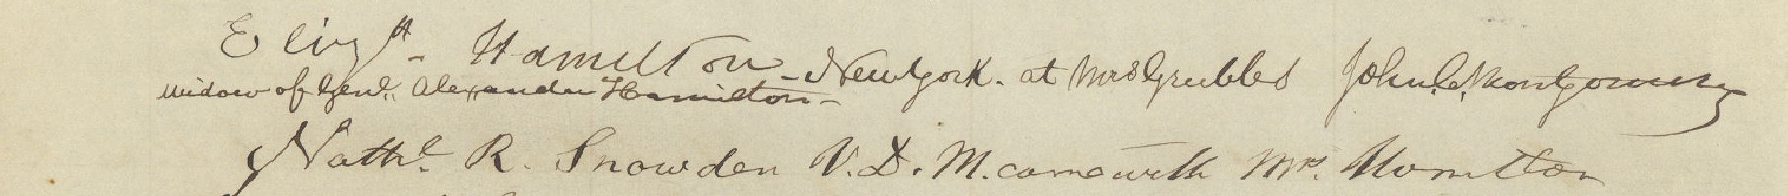 Elizth Hamilton - New York. at Mrs Grubbs John C. Montgomery
widow of Genl. Alexander Hamilton -
Nathl. R. Snowden V.D.M. came with Mrs. Hamilton